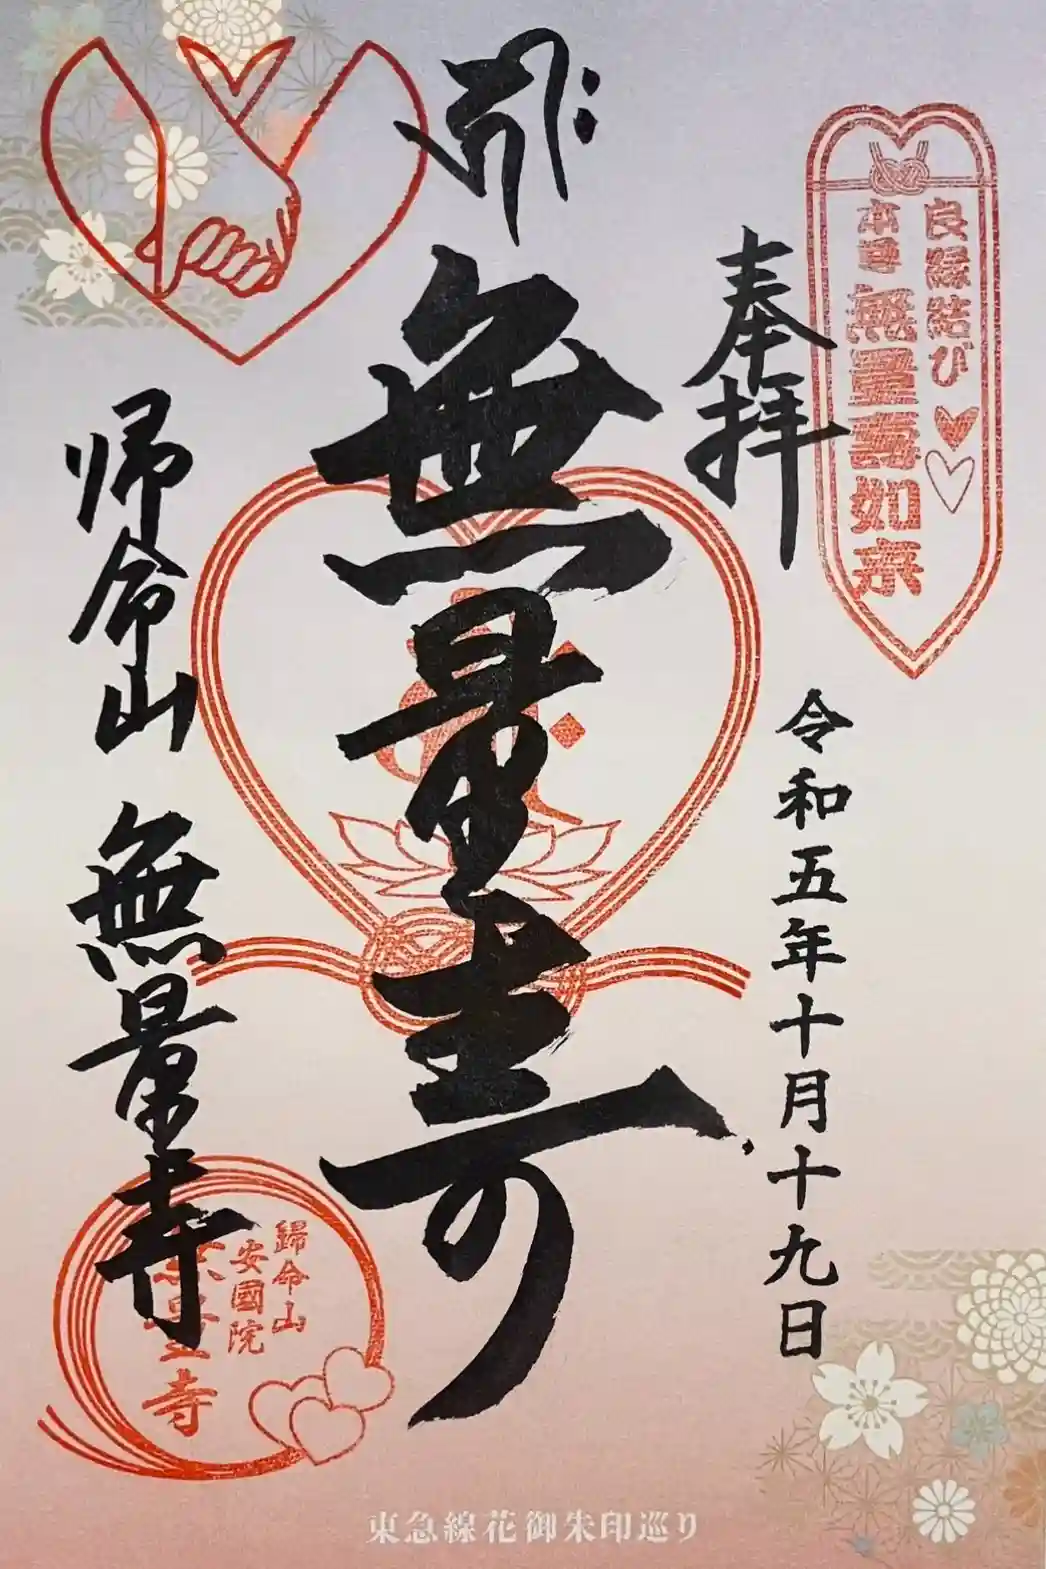 良縁結び
本尊 無量壽如来
奉拝
令和五年十月十九日
無量壽
帰命山 無量寺
歸命山
安國院
無量寺
東急線花御朱印巡り